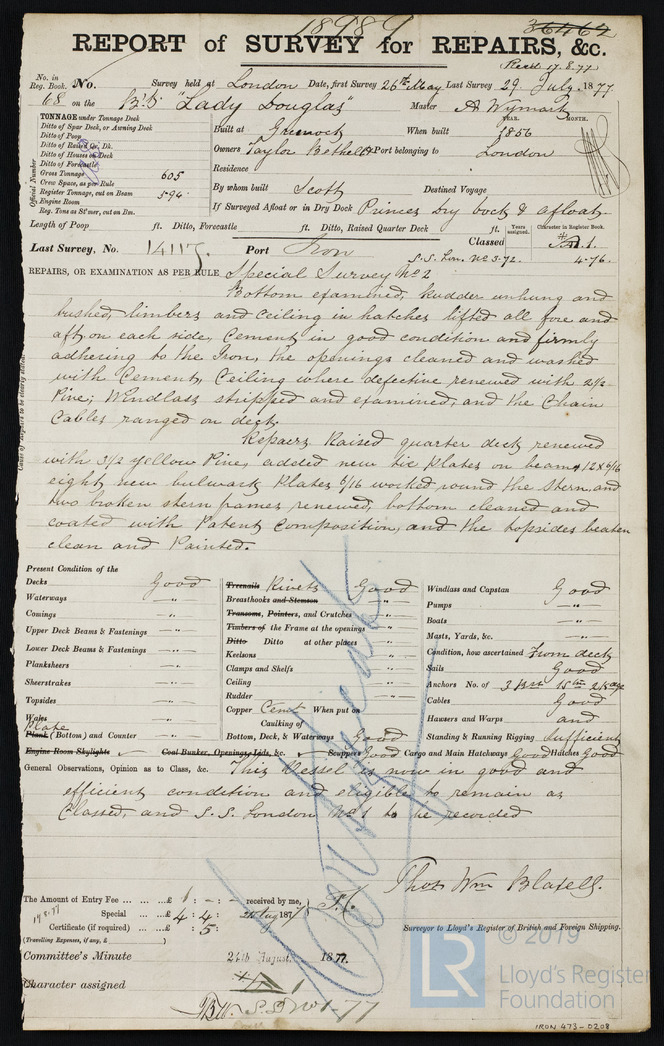 18989
36464
REPORT of SURVEY for REPAIRS, &c.
(Recd 17.8.77
No. in Reg. Book. No. Survey held at London Date, first Survey 26th May Last Survey 29 July 1877
68 on the Bk "Lady Douglas" Master A Wymark
TONNAGE under Tonnage Deck
Ditto of Spar Deck, or Awning Deck
Ditto of Poop
Ditto of Raised Qr. Dk.
Ditto of Houses on Deck
Ditto of Forecastle
Gross Tonnage 605
Crew Space, as per Rule
Register Tonnage, cut on Beam 594
Engine Room
Reg. Tons as St'mer, cut on Bm.
Official Number
YEAR. MONTH.
Built at Greenock When built 1856
Owners Taylor Bethell & Co Port belonging to London
Residence
By whom built Scott Destined Voyage
If Surveyed Afloat or in Dry Dock Princes Dry Dock & afloat.
Length of Poop ft. Ditto, Forecastle ft. Ditto, Raised Quarter Deck ft.
Years assigned. Character in Register Book.
Last Survey, No. 14117. Port Iron Classed A 1.
S.S. Lon. No 3-72. 4-76.
REPAIRS, OR EXAMINATION AS PER RULE Special Survey No 2
Bottom examined, Rudder unhung and
bushed, limbers and Ceiling in hatches lifted all fore and
aft, on each side, Cement in good condition and firmly
adhering to the Iron, the openings cleaned and washed
with Cement, Ceiling where defective renewed with 2½
Pine; Windlass stripped and examined, and the Chain
Cables ranged on deck.
Repairs Raised quarter deck renewed
with 3½ Yellow Pine, added new tie Plates on beams 12 x 6/16
eight new bulwark Plates 5/16 worked round the stern, and
two broken stern frames renewed, bottom cleaned and
coated with Patent Composition, and the topsides beaten
clean and Painted.
Present Condition of the
Decks Good
Waterways - " -
Comings - " -
Upper Deck Beams & Fastenings - " -
Lower Deck Beams & Fastenings - " -
Planksheers - " -
Sheerstrakes - " -
Topsides - " -
Wales - " -
Plate
Plank (Bottom) and Counter - " -
Engine Room Skylights
Treenails Rivets Good
Breasthooks and Stemson - " -
Transoms, Pointers, and Crutches - " -
Timbers of the Frame at the openings - " -
Ditto Ditto at other places - " -
Keelsons - " -
Clamps and Shelfs - " -
Ceiling - " -
Rudder - " -
Copper Cemt When put on
Caulking of
Bottom, Deck, & Waterways Good
Coal Bunker, Openings, Lids, &c. Scuppers Good Cargo and Main Hatchways Good Hatches Good
Windlass and Capstan Good
Pumps - " -
Boats - " -
Masts, Yards, &c. - " -
Condition, how ascertained From deck
Sails Good
Anchors No. of 3 Brs 1 Stm 2 Kedge
Cables Good
Hawsers and Warps and
Standing & Running Rigging Sufficient
General Observations, Opinion as to Class, &c. This Vessel is now in good and
efficient condition and eligible to remain as
Classed, and S.S. London No 1 to be recorded
Thos Wm Blabell.
Surveyor to Lloyd's Register of British and Foreign Shipping.
The Amount of Entry Fee ... £ 1 : - : - received by me,
Special ... £ 4 : 4 :
Certificate (if required) ... £ : 5 :
(Travelling Expenses, if any, £ )
Committee's Minute 24th August 1877.
Character assigned A 1
S.S No 1-77
© 2019
LR
Lloyd's Register
Foundation
IRON 473-0208